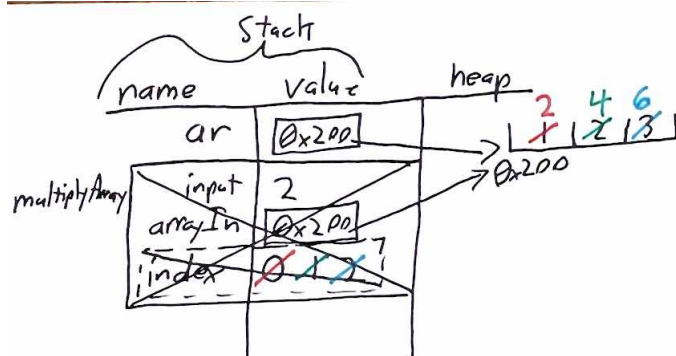 Stack
name value heap
2 4 6
ar 0x200 1 2 3
0x200
multiplyArray input 2
arrayIn 0x200
index 0 1 2